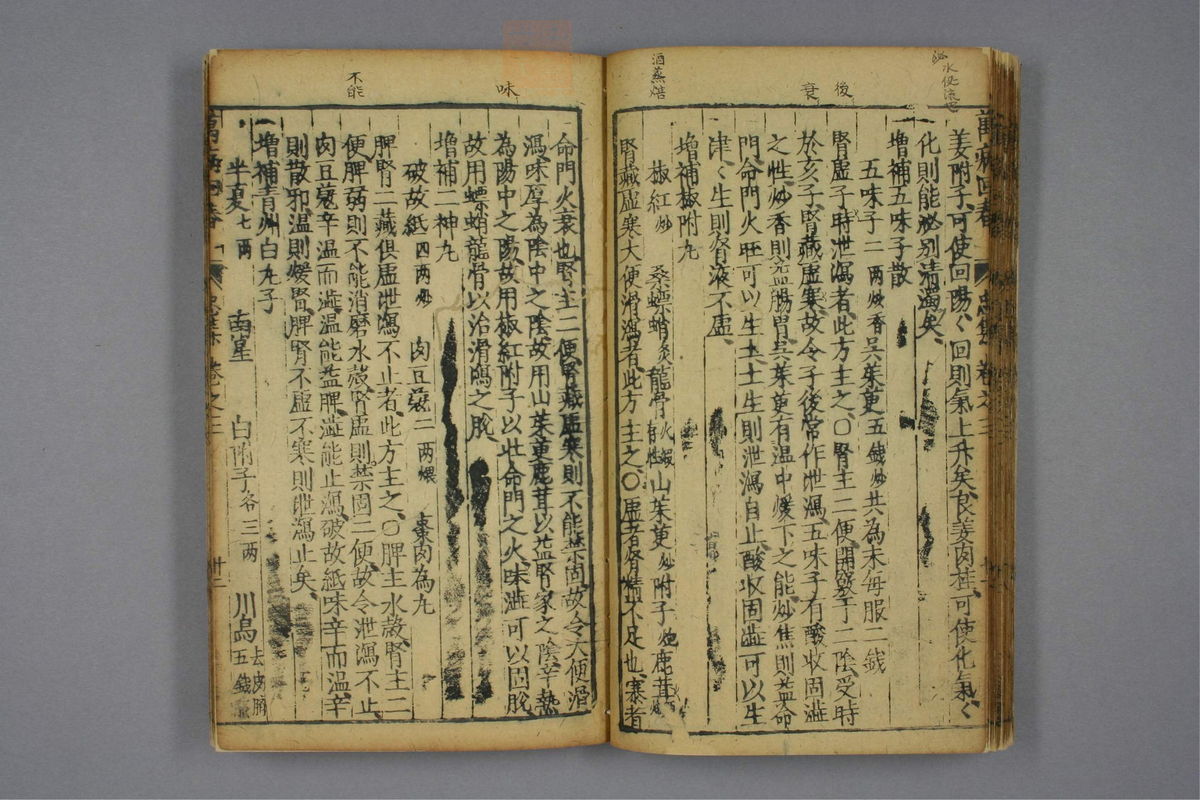 後
衰
酒蒸焙
姜附子、可使回陽、〻回則氣上升矣、良姜肉桂、可使化氣、〻
化則能泌別清濁矣、
增補五味子散
五味子二兩炒香吳茱萸五錢炒共為末每服二錢
腎虛子時泄瀉者、此方主之、〇腎主二便、開竅于二陰、受時
於亥子、腎藏虛寒、故令子後常作泄瀉、五味子有酸收固澁
之性、炒香則益腸胃、吳茱萸有溫中煖下之能、炒焦則益命
門、命門火旺可以生土、土生則泄瀉自止、酸收固澁可以生
津、〻生則腎液不虛、
增補椒附丸
椒紅炒 桑螵蛸炙龍骨火煅山茱萸炒附子炮鹿茸
腎藏虛寒、大便滑瀉者、此方主之、〇虛者、腎精不足也、寒者
味
不能
命門火衰也、腎主二便、腎藏虛寒、則不能禁固、故令大便滑
瀉、味厚為陰中之陰、故用山茱萸鹿茸以益腎家之陰、辛熱
為陽中之陽、故用椒紅附子以壯命門之火、味澁可以固脫、
故用螵蛸龍骨以治滑瀉之脫、
增補二神丸
破故紙四兩炒 肉豆蔻二兩煨 棗肉為丸
脾腎二藏俱虛、泄瀉不止者、此方主之、〇脾主水穀、腎主二
便、脾弱則不能消磨水穀、腎虛則禁固二便、故令泄瀉不止、
肉豆蔻辛溫而澁、溫能益脾、澁能止瀉、破故紙味辛而溫、辛
則散邪、溫則煖腎、脾腎不虛不寒、則泄瀉止矣、
增補青州白丸子
半夏七兩 南星 白附子各三兩 川烏去皮臍五錢